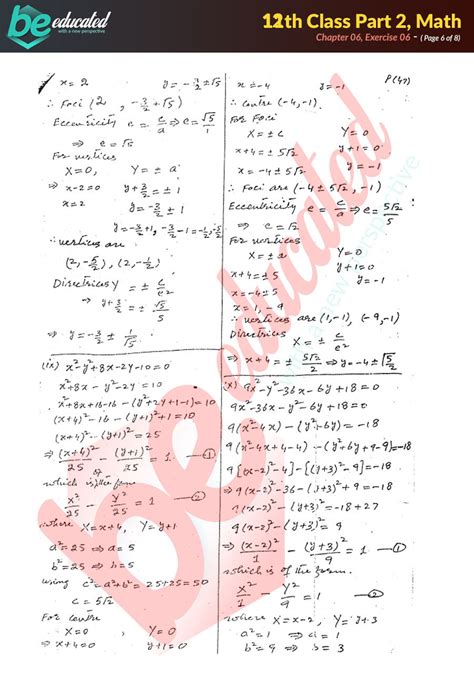 be educated
with a new perspective
12th Class Part 2, Math
Chapter 06, Exercise 06 - ( Page 6 of 8)
x = 2 y = -3/2 ±√5
∴ Foci (2, -3/2 ±√5)
Eccentricity e = c/a ⇒ e = √5/1
⇒ e = √5
For vertices
X = 0, Y = ± a
⇒ x-2=0 y+3/2 = ± 1
x = 2 y = -3/2 ± 1
y = -3/2+1, -3/2-1 = -1/2, -5/2
∴ vertices are
(2, -5/2), (2, -1/2)
Directrices Y = ± c/e²
y+3/2 = ± √5/5
⇒ y = -3/2 ± 1/√5
P(47)
x = -4 y = -1
∴ centre (-4, -1).
For Foci
X = ± c Y = 0
x+4 = ± 5√2 y+1 = 0
x = -4 ± 5√2 y = -1
∴ Foci are (-4 ± 5√2, -1)
Eccentricity e = c/a ⇒ e = 5√2/5
⇒ e = √2
For vertices
X = ± a Y = 0
x+4 = ± 5 y+1 = 0
x = -4 ± 5 y = -1
x = 1, -9
∴ vertices are (1, -1), (-9, -1)
Directrices
X = ± c/e²
⇒ x+4 = ± 5√2/2
(ix) x²-y²+8x-2y-10=0
x²+8x-y²-2y = 10
x²+8x+16-16-(y²+2y+1-1)=10
(x+4)²-16-(y+1)²+1=10
(x+4)²-(y+1)²=25
⇒ (x+4)²/25 - (y+1)²/25 = 1 — ①
which is the form
X²/25 - Y²/25 = 1 — ②
where X = x+4, Y = y+1
a² = 25 ⇒ a = 5
b² = 25 ⇒ b = 5
using c² = a²+b² = 25+25 = 50
c = 5√2
For centre
X = 0 Y = 0
⇒ x+4=0 y+1=0
(x) 9x²-y²-36x-6y+18=0
9x²-36x-y²-6y+18=0
9(x²-4x)-(y²+6y)=-18
9(x²-4x+4-4)-(y²+6y+9-9)=-18
9[(x-2)²-4]-[(y+3)²-9]=-18
9(x-2)²-36-(y+3)²+9=-18
9(x-2)²-(y+3)²=-18+27
9(x-2)²-(y+3)²=9
⇒ (x-2)²/1 - (y+3)²/9 = 1 — ①
which is of the form
X²/1 - Y²/9 = 1 — ②
where X = x-2, Y = y+3
a² = 1 ⇒ a = 1
b² = 9 ⇒ b = 3